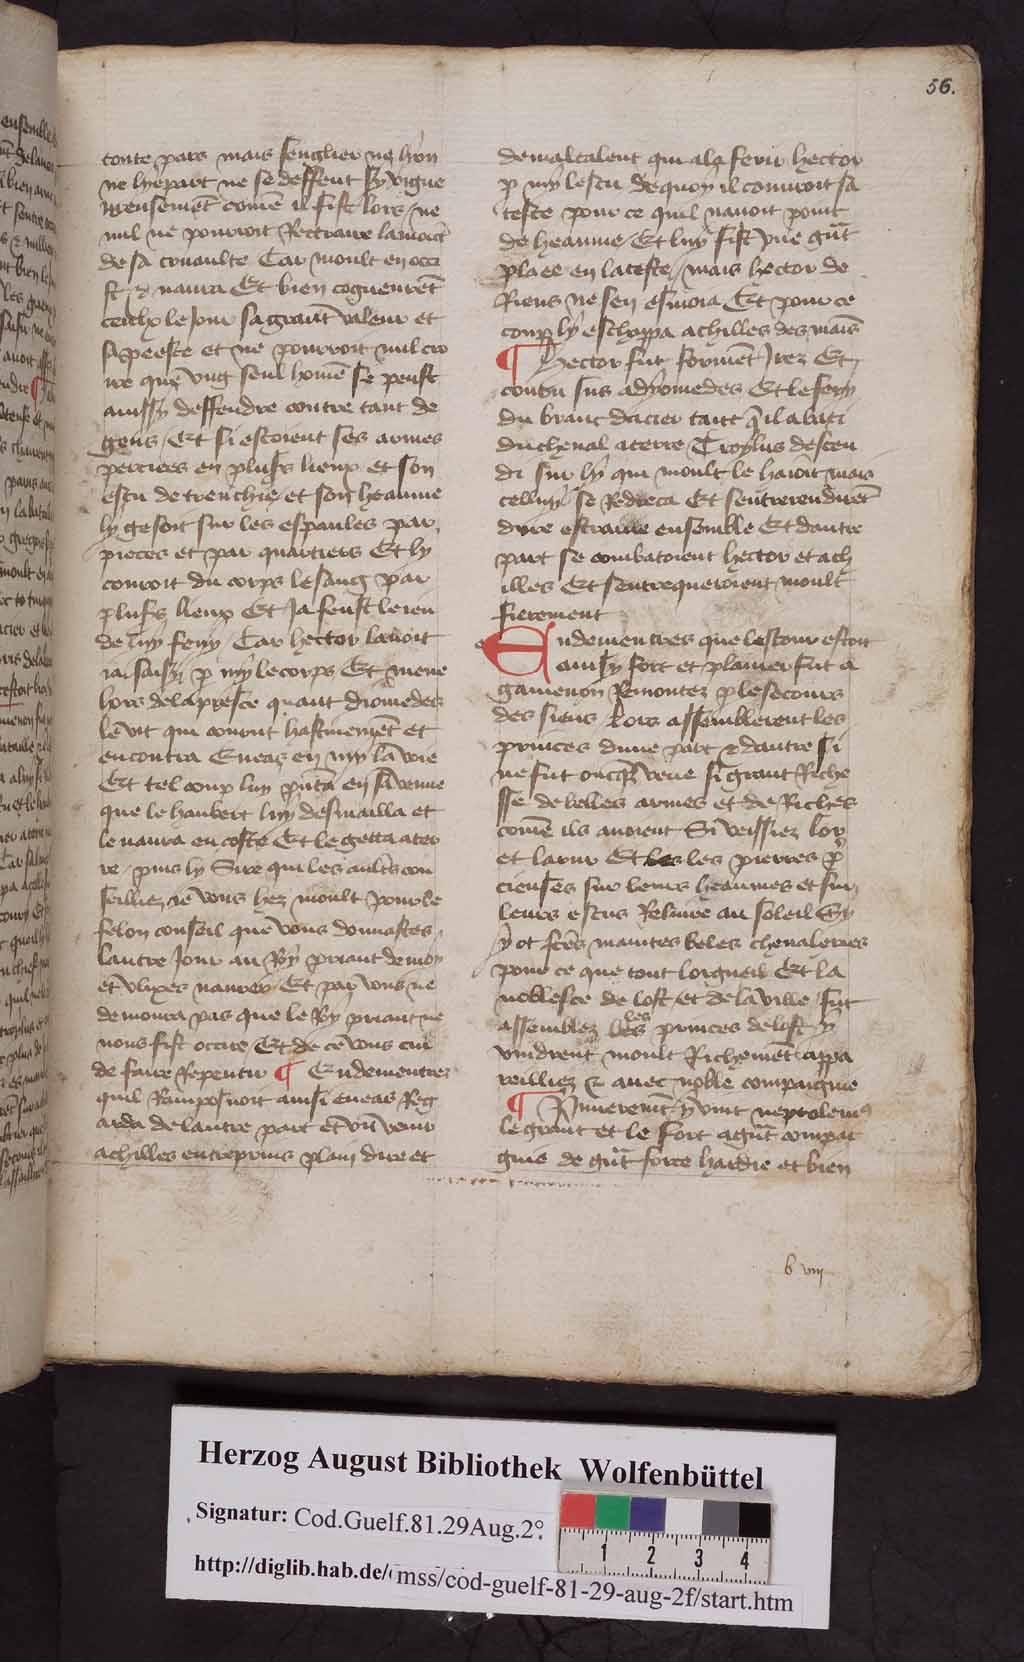 56.
toute pars mais senglier ne lyon
ne lyepart ne se deffent sy vigue
reusemēt come il fist lors / ne
nul ne pourroit Retraire
de sa Car moult en occi
st et naura Et bien cogneurēt
ceulx le Jour sa grant valeur et
sa et ne pourroit nul cro
ire que vng seul home se peust
ainssy deffendre contre tant de
gens / Et si estoient ses armes
perciees en plus's lieux et son
escu detrenchie et son heaume
ly gesoit sur les espaules par
pieces et par quartiers Et ly
couroit du corps le sang par
plus's lieux Et Ja feust le ieu
de luy feny / Car hector lauoit
ia saisy p my le corps Et mene
hors de la presse quant diomedes
le vit qui courut hastiuemēt et
encontra Eneas en my la voie
Et tel coup luy en sa venue
que le haubert luy desmailla et
le naura en coste Et le getta ater
re / puis ly Sire qui les aultˢ con
seilliez ie vous hez moult pour le
felon conseil que vous donnastes
lautre Jour au Roy priant de moy
et vlixes naurer / Et par vous ne
demoura pas que le Roy priant ne
nous fist occire / Et de ce vous cui
de faire Repentir ¶ Endementrez
quil Ramposnoit ainsi eneas Reg
arda de lautre part et vit venir
achilles entreprins plain dire et
demaltalent qui ala ferir hector
p my lescu dequoy il couuroit sa
teste pour ce quil nauoit point
de heaume / Et luy fist vne gñt
plaee en lateste / mais hector de
Riens ne sen esmoia Et pour ce
coup ly eschappa achilles des mais
¶ Hector fut formēt Irez Et
couru sus adyomedes Et le fery
du branc dacier tant q il abati
du cheual aterre Troylus descen
di sur ly qui moult le haioit mais
celluy se Redreca Et sentrerendirēt
dure estraine ensemble Et dautre
part se combatoient hector et ach
illes Et sentrequeroient moult
fierement
Endementres que lestour estoit
ainsy fort et planier fut a
gamenon Remontez p le secours
des siens / Lors assemblerent les
princes dune part et dautre si
ne fut oncq̄s veue si grant Riche
sse de belles armes et de Riches
come ils auoient Si veissiez lor
et lazur Et les les pierres p̄
cieuses sur leurs heaumes et sur
leurs escus Reluire au soleil Sy
y ot fc̄es maintes beles cheualeries
pour ce que tout lorgueil Et la
noblesce de lost / et de la ville / fut
assemblez les les princes de lost y
vindrent moult Richemēt appa
reilliez et auec noble compaignie
¶ Pmierenut y vint neptolemus
le grant et le fort a gñt compai
gnie de gñt force hardie et bien
b viij
Herzog August Bibliothek Wolfenbüttel
Signatur: Cod.Guelf.81.29Aug.2°.
http://diglib.hab.de/mss/cod-guelf-81-29-aug-2f/start.htm
1 2 3 4